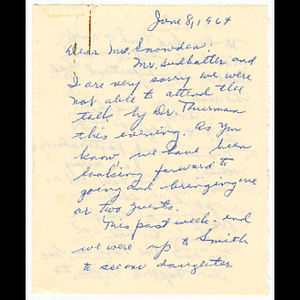 June 8, 1964
Dear Mrs. Snowden:
Mr. and
I are very sorry we were
not able to attend the
talk by Dr. Thurman
this evening. As you
know we have been
looking forward to
going and bringing one
or two guests.
This past week-end
we were up to Smith
to see our daughter